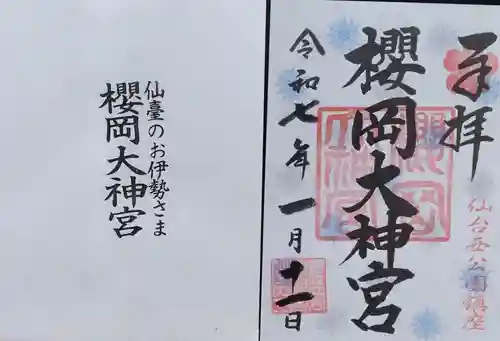 仙臺のお伊勢さま
櫻岡大神宮
奉拝
仙台西公園鎮座
櫻岡大神宮
令和七年一月十一日